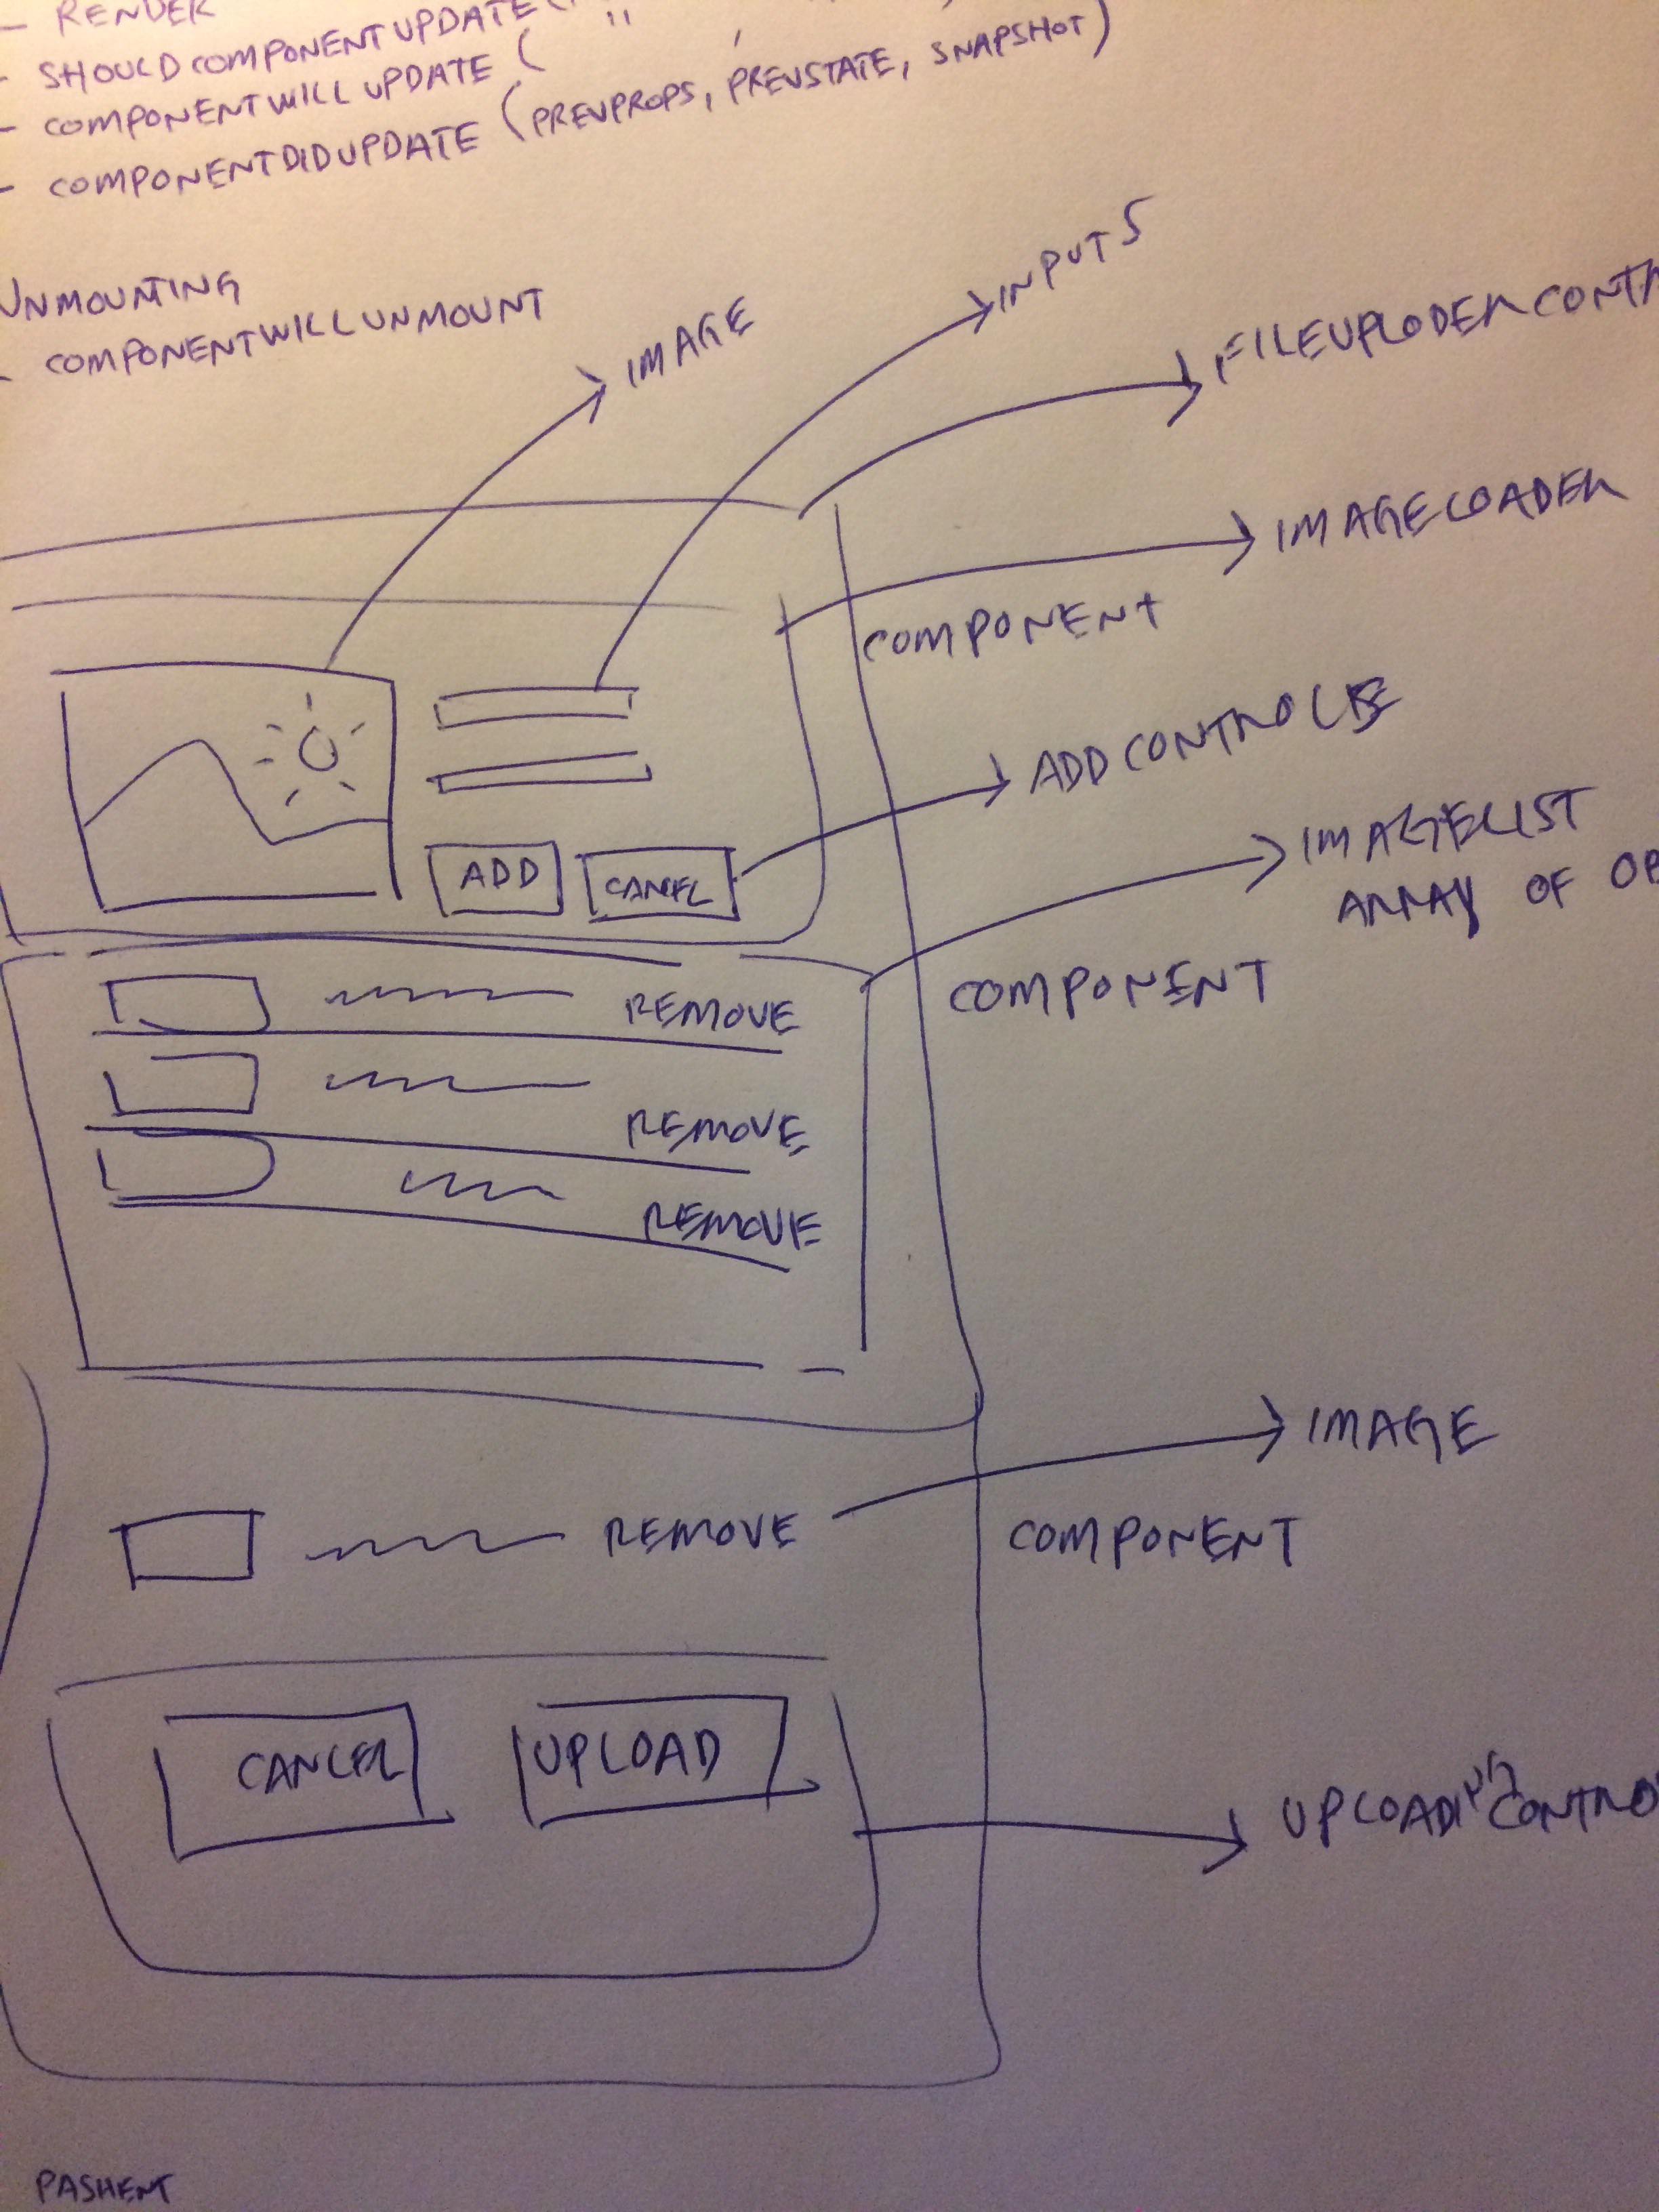 - RENDER
- SHOULDCOMPONENTUPDATE (
- COMPONENTWILLUPDATE ( " ,
- COMPONENTDIDUPDATE (PREVPROPS, PREVSTATE, SNAPSHOT)
UNMOUNTING
- COMPONENTWILLUNMOUNT
IMAGE
INPUTS
FILEUPLODERCONT
IMAGELOADER
COMPONENT
ADDCONTROLS
ADD
CANCEL
IMAGELIST
ARRAY OF OB
COMPONENT
REMOVE
REMOVE
REMOVE
IMAGE
REMOVE
COMPONENT
CANCEL
UPLOAD
CONTRO
PASHENT